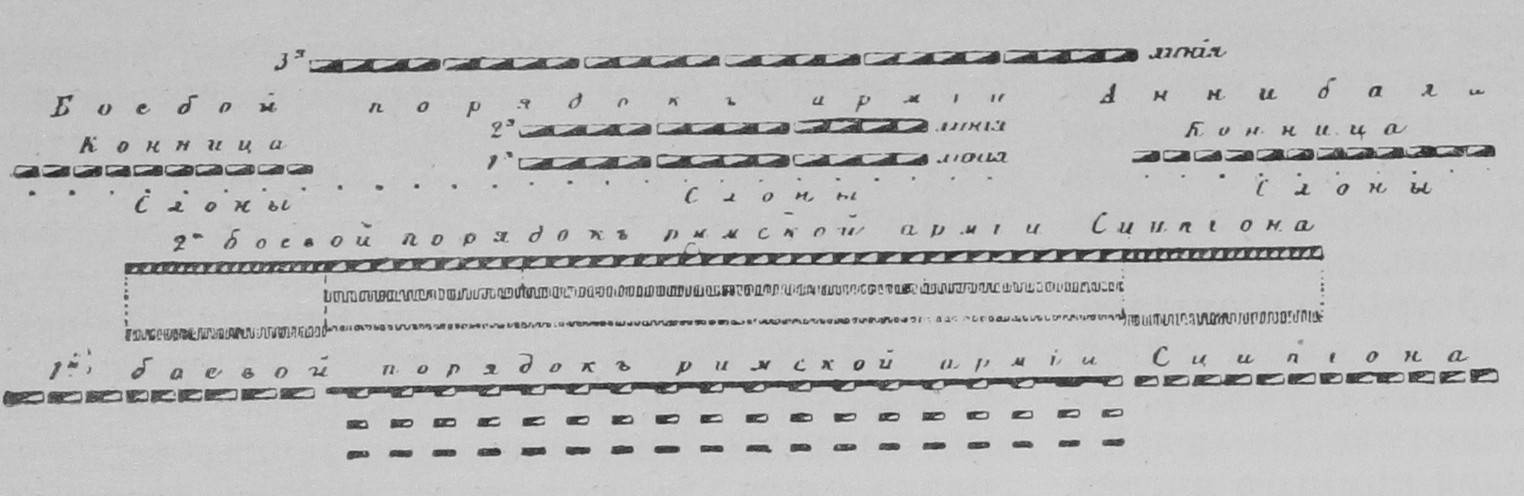 3я линія
Боевой порядокъ арміи Аннибала
2я линія
Конница Конница
1я линія
Слоны Слоны Слоны
2й боевой порядокъ римской арміи Сципіона
1й боевой порядокъ римской арміи Сципіона